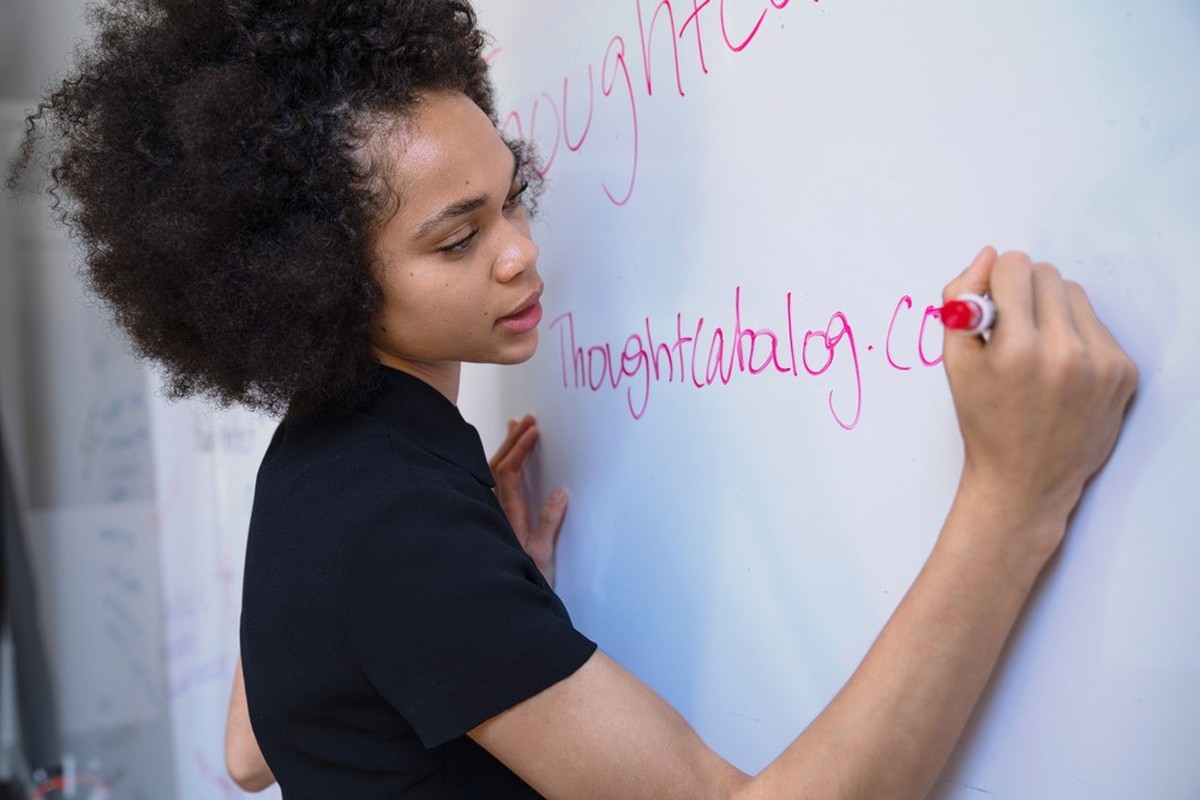 ThoughtCa
Thoughtcatalog.co